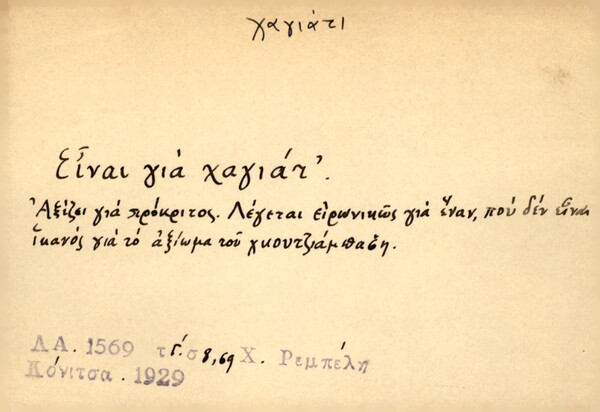 χαγιάτι
Εἶναι γιὰ χαγιάτ'.
Ἀξίζει γιὰ πρόκριτος. Λέγεται εἰρωνικῶς γιὰ ἕναν, ποὺ δέν εἶναι
ἱκανός γιὰ τό ἀξίωμα τοῦ γκουτζιάμπαση.
ΛΑ. 1569 τ Γ. σ 8,69 Χ. Ρεμπέλη
Κόνιτσα. 1929